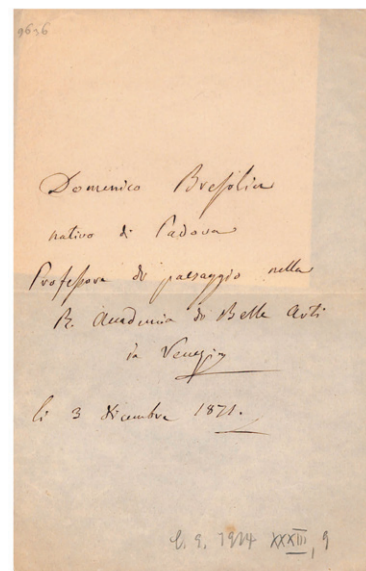 9696
Domenico Bresolin
nativo di Padova
Professore di paesaggio nella
R. Accademia di Belle Arti
in Venezia
li 3 Dicembre 1871.
1924 XXXIII, 9